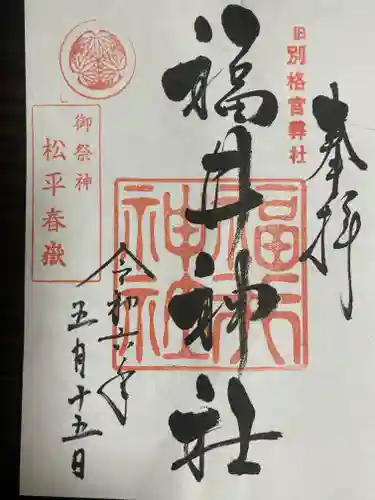 奉拝
旧別格官幣社
福井神社
福井神社
御祭神
松平春嶽
令和六年
五月十五日